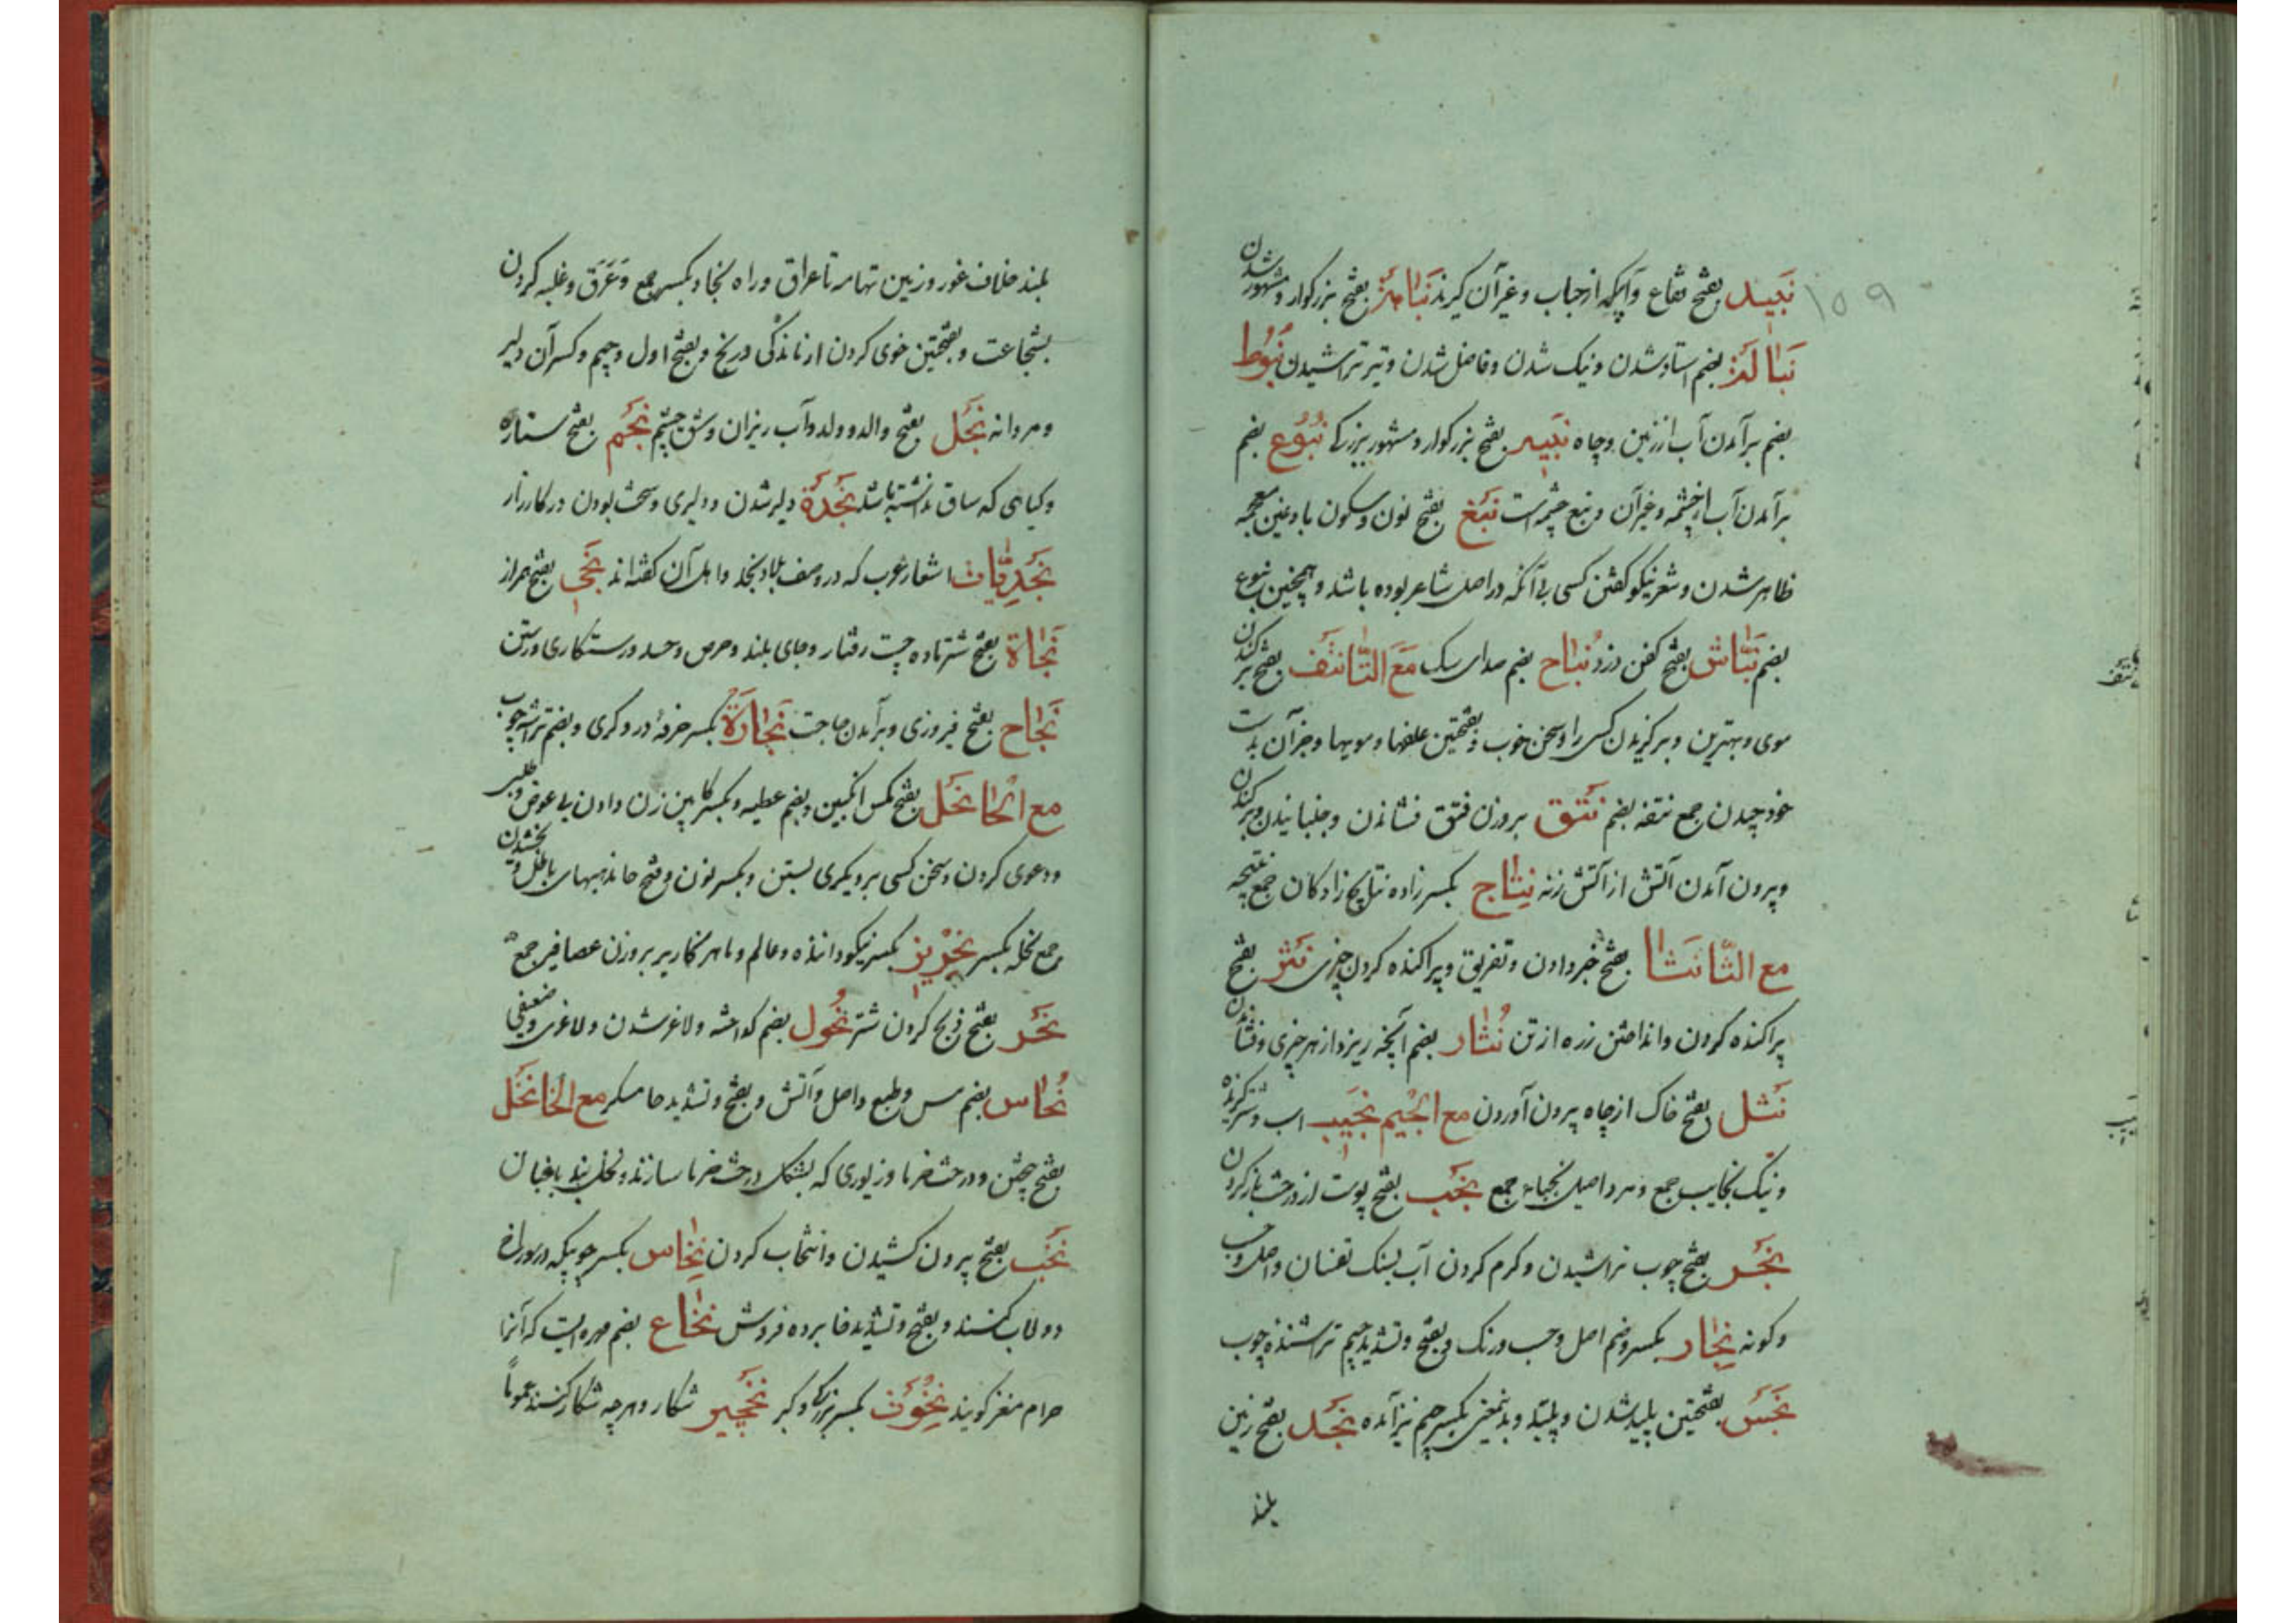 ۱۵۹
نبید بفتح فقاع و آنکه از حباب و غیر آن کیرند نباهة بفتح بزرکوار و مشهور شدن
نبالة بضم استاد شدن و نیک شدن و فاضل شدن و تیر تراشیدن نبوط
بضم برآمدن آب از زمین و چاه نبیه بفتح بزرکوار و مشهور ببزرکی نبوع بضم
برآمدن آب از چشمه و غیر آن و نبع چشمه است نبغ بفتح نون و سکون با و غین معجمه
ظاهر شدن و شعر نیکو کفتن کسی بی آنکه در اصل شاعر بوده باشد و همچنین نبوغ
بضم نبّاش بفتح کفن دزد نباح بضم صدای سک مع التّا نتف بفتح بر کندن
موی و بهترین و برکزیدن کسی را و سخن خوب و بفتحتین علفها و مویها و جز آن بدست
خود چیدن جمع نتفه بضم نتق بروزن فتق فشاندن و جنبانیدن و بر کندن
و بیرون آمدن آتش از آتش زنه نتاج بکسر زاده نتایج زادکان جمع نتیجه
مع الثّا نثا بفتح خبر دادن و تفریق و پراکنده کردن چیزی نثر بفتح
پراکنده کردن و انداختن زره از تن نثار بضم آنچه ریزد از هر چیزی و فشاندن
نثل بفتح خاک از چاه بیرون آوردن مع الجیم نجیب اسب و شتر کزیده
و نیک نجایب جمع و مرد اصیل نجباء جمع نجب بفتح پوست از درخت باز کردن
نجر بفتح چوب تراشیدن و کرم کردن آب بسنک تفسان و اصل و حسب
و کونه نجار بکسر و ضم اصل و حسب و رنک و بفتح و تشدید جیم تراشنده چوب
نجس بفتحتین پلید شدن و پلید و بدینمعنی بکسر جیم نیز آمده نجد بفتح زمین
بلند
بلند خلاف غور و زمین تهامه تا عراق و راه نجاد بکسر جمع و عَرَق و غلبه کردن
بشجاعت و بفتحتین خوی کردن از ماندکی و رنج و بفتح اول و جیم و کسر آن دلیر
و مردانه نجل بفتح والد و ولد و آب ریزان و شق چشم نجم بفتح ستاره
و کیاهی که ساق نداشته باشد نجدة دلیر شدن و دلیری و سخت بودن در کارزار
نجدیّات اشعار عرب که در وصف بلاد نجد و اهل آن کفته اند نجی بفتح همراز
نجاة بفتح شتر ماده چست رفتار و جای بلند و حرص و حسد و رستکاری و رستن
نجاح بفتح فیروزی و برآمدن حاجت نجارة بکسر حرفهٔ درودکری و بضم تراشه چوب
مع الحا نحل بفتح مکس انکبین و بضم عطیه و بکسر کابین زن دادن بی عوض و طلب
و دعوی کردن و سخن کسی بر دیکری بستن و بکسر نون و فتح حا مذهبهای باطل و بخشیدن
جمع نحله بکسر نحریر بکسر نیکو داننده و عالم و ماهر نحاریر بروزن عصافیر جمع
نحر بفتح ذبح کردن شتر نحول بضم کداخته و لاغر شدن و لاغری و ضعیفی
نحاس بضم مس و طبع و اصل و آتش و بفتح و تشدید حا مسکر مع الخا نخل
بفتح بیختن و درخت خرما و زیوری که بشکل درخت خرما سازند و نخل بند باغبان
نخب بفتح بیرون کشیدن و انتخاب کردن نخاس بکسر چوبیکه در سوراخ
دولاب کنند و بفتح و تشدید خا برده فروش نخاع بضم مهره ایست که آنرا
حرام مغز کویند نخوت بکسر بزرکی و کبر نخجیر شکار و هر چه شکار کنند عموماً